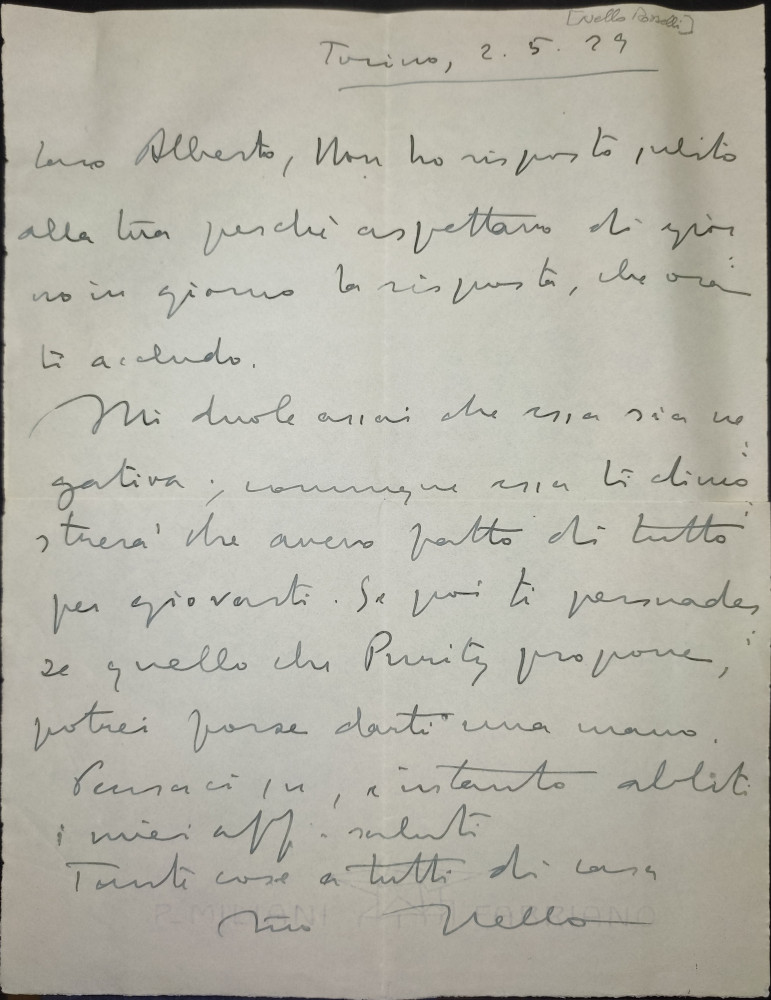 [Nello Rosselli]
Torino, 2. 5. 29
Caro Alberto, Non ho risposto subito
alla tua perché aspettavo di gior
no in giorno la risposta, che ora
ti accludo.
Mi duole assai che essa sia ne
gativa; comunque essa ti dimo
strerà che avevo fatto di tutto
per giovarti. Se poi ti persuades
se quello che Purity propone,
potrei forse darti una mano.
Pensaci su, e intanto abbiti
i miei aff. saluti
Tante cose a tutti di casa
Tuo Nello
P. MILIANI FABRIANO